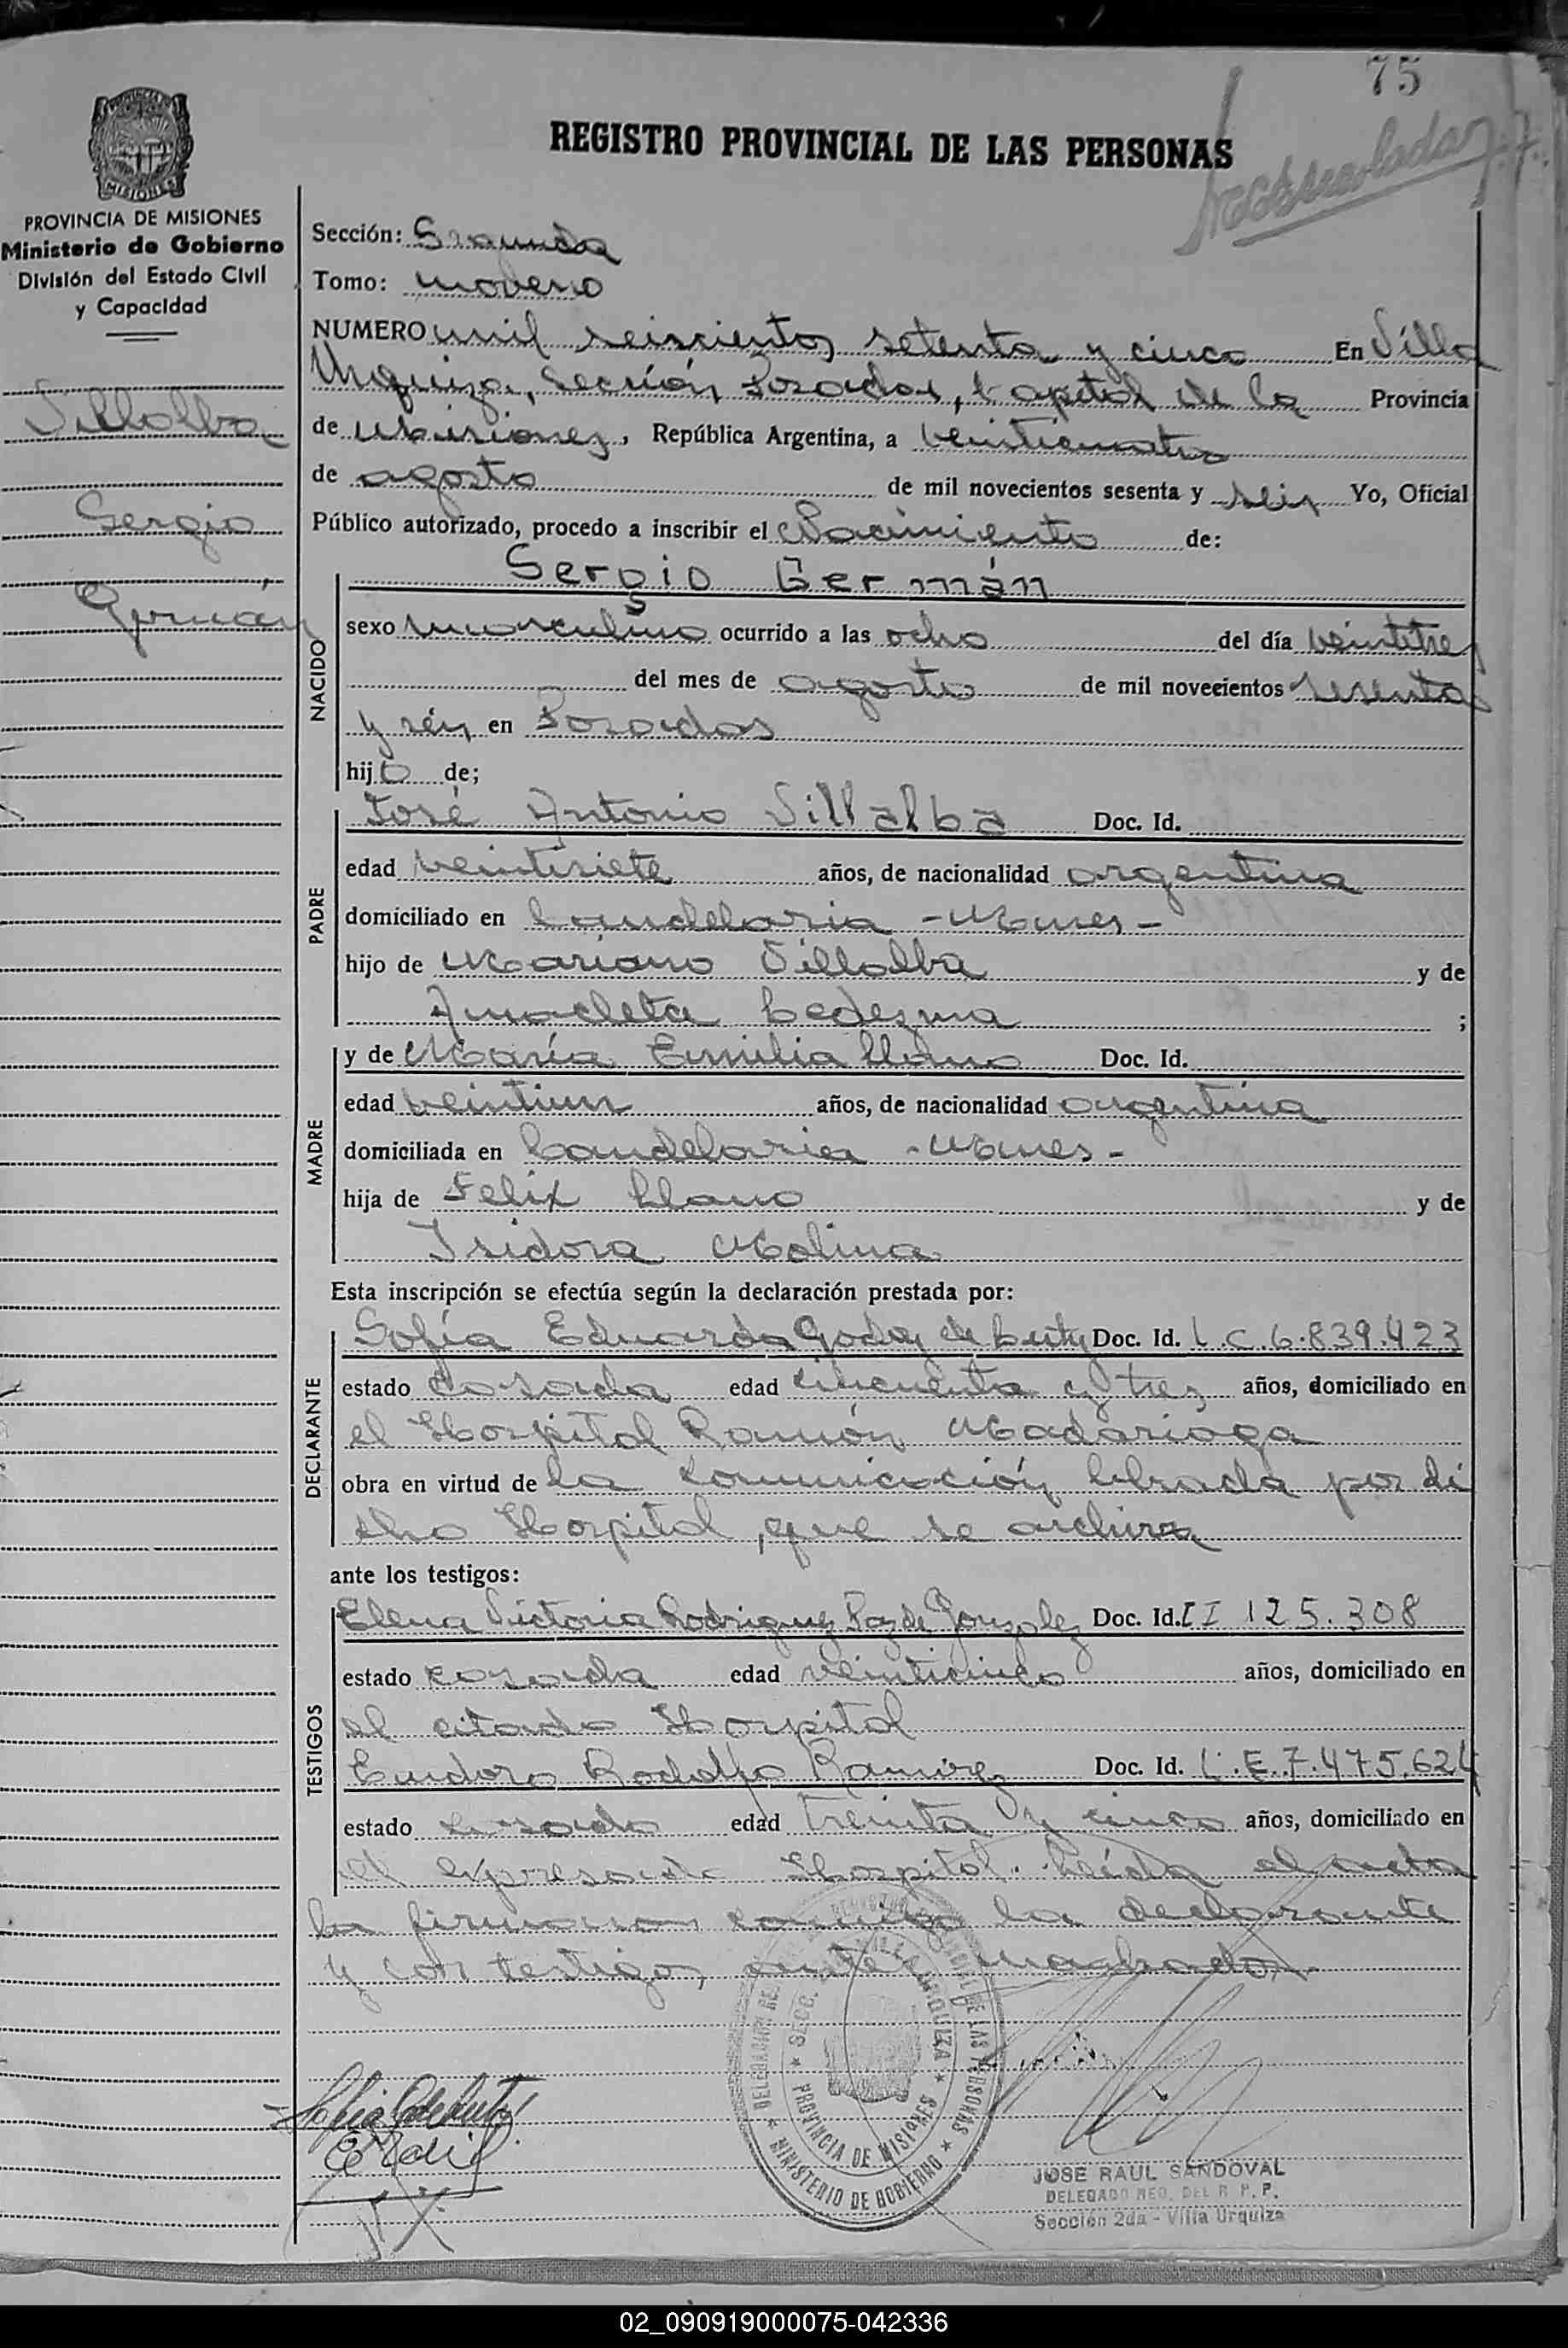 75
REGISTRO PROVINCIAL DE LAS PERSONAS
PROVINCIA DE MISIONES
Ministerio de Gobierno
División del Estado Civil
y Capacidad
Villalba
Sergio
Germán
Sección: Segunda
Tomo: noveno
NUMERO mil seiscientos setenta y cinco En Villa
Urquiza, Sección Posadas, Capital de la Provincia
de Misiones, República Argentina, a veinticuatro
de agosto de mil novecientos sesenta y seis Yo, Oficial
Público autorizado, procedo a inscribir el Nacimiento de:
Sergio Germán
NACIDO
sexo masculino ocurrido a las ocho del día veintitres
del mes de agosto de mil novecientos sesenta
y seis en Posadas
hijo de;
PADRE
José Antonio Villalba Doc. Id.
edad veintisiete años, de nacionalidad argentina
domiciliado en Candelaria - Mnes -
hijo de Mariano Villalba y de
Anacleta Ledesma ;
MADRE
y de María Emilia Llano Doc. Id.
edad veintiun años, de nacionalidad argentina
domiciliada en Candelaria - Mnes -
hija de Felix Llano y de
Isidora Molina
Esta inscripción se efectúa según la declaración prestada por:
DECLARANTE
Sofía Eduarda Godoy de Doc. Id. L.C. 6.839.423
estado casada edad cincuenta y tres años, domiciliado en
el Hospital Ramón Madariaga
obra en virtud de la comunicación librada por di
cho Hospital, que se archiva
ante los testigos:
TESTIGOS
Elena Victoria Rodriguez Paz de Gonzalez Doc. Id. CI 125.308
estado casada edad veinticinco años, domiciliado en
el citado Hospital
Eudoro Rodolfo Ramirez Doc. Id. L.E. 7.475.624
estado casado edad treinta y cinco años, domiciliado en
el expresado Hospital. Leída el acta
la firmaron conmigo la declarante
y los testigos,
DELEGACION REG. PROVINCIAL DE LAS PERSONAS
SECC. VILLA URQUIZA
PROVINCIA DE MISIONES
MINISTERIO DE GOBIERNO
JOSE RAUL SANDOVAL
DELEGADO REG. DEL R. P. P.
Sección 2da - Villa Urquiza
02_090919000075-042336